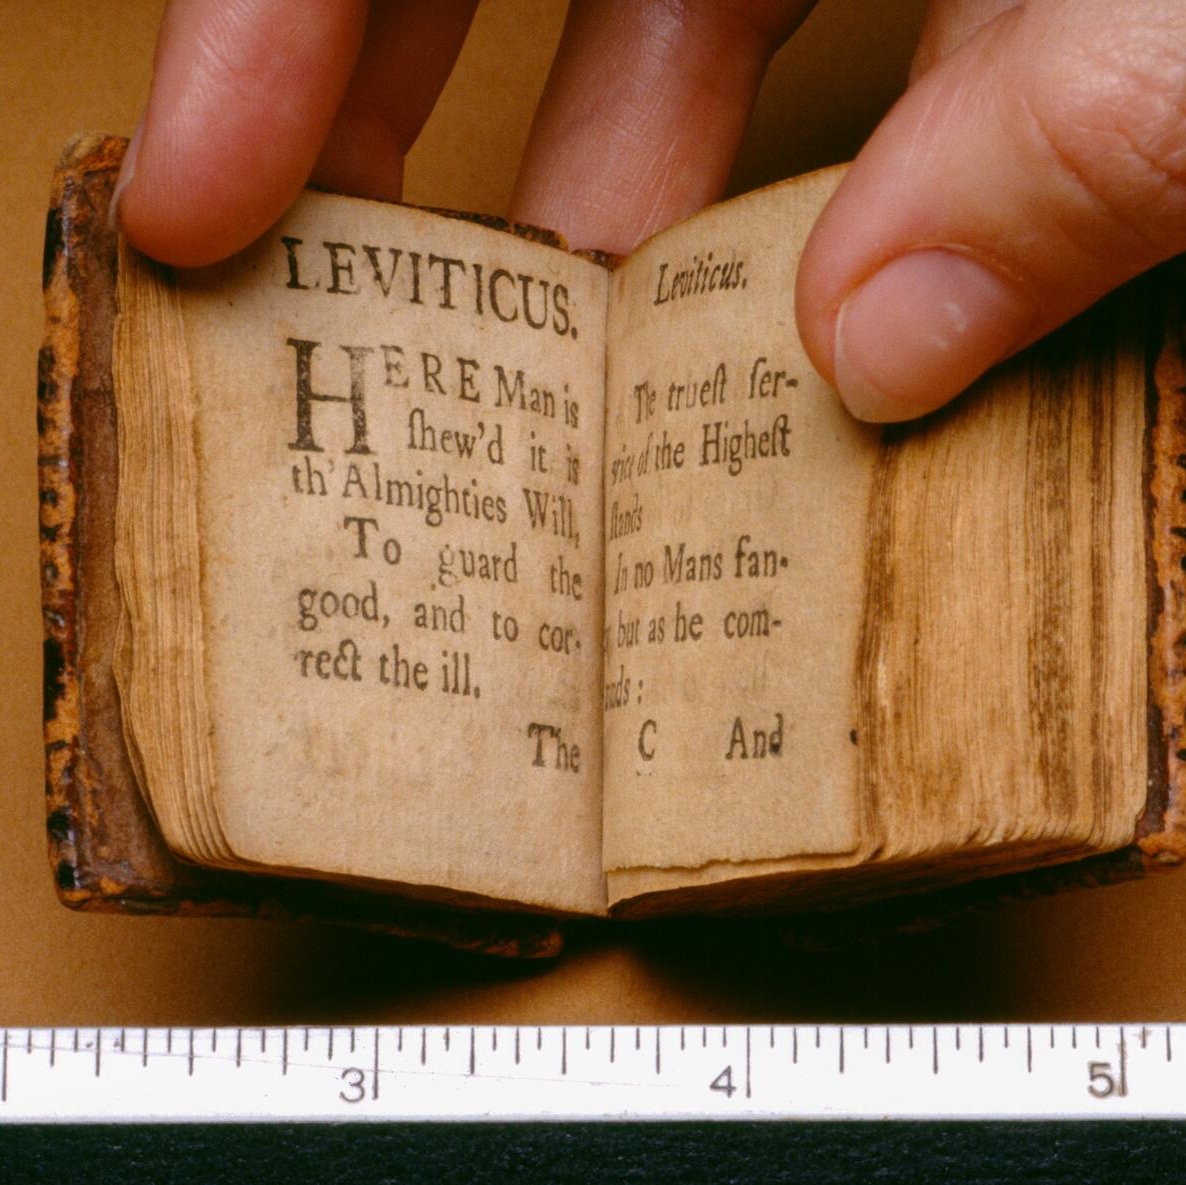 LEVITICUS.
HERE Man is
ſhew'd it is
th' Almighties Will,
To guard the
good, and to cor-
rect the ill.
The
Leviticus.
The trueſt ſer-
vice of the Higheſt
ſtands
In no Mans fan-
but as he com-
:
C And
3 4 5